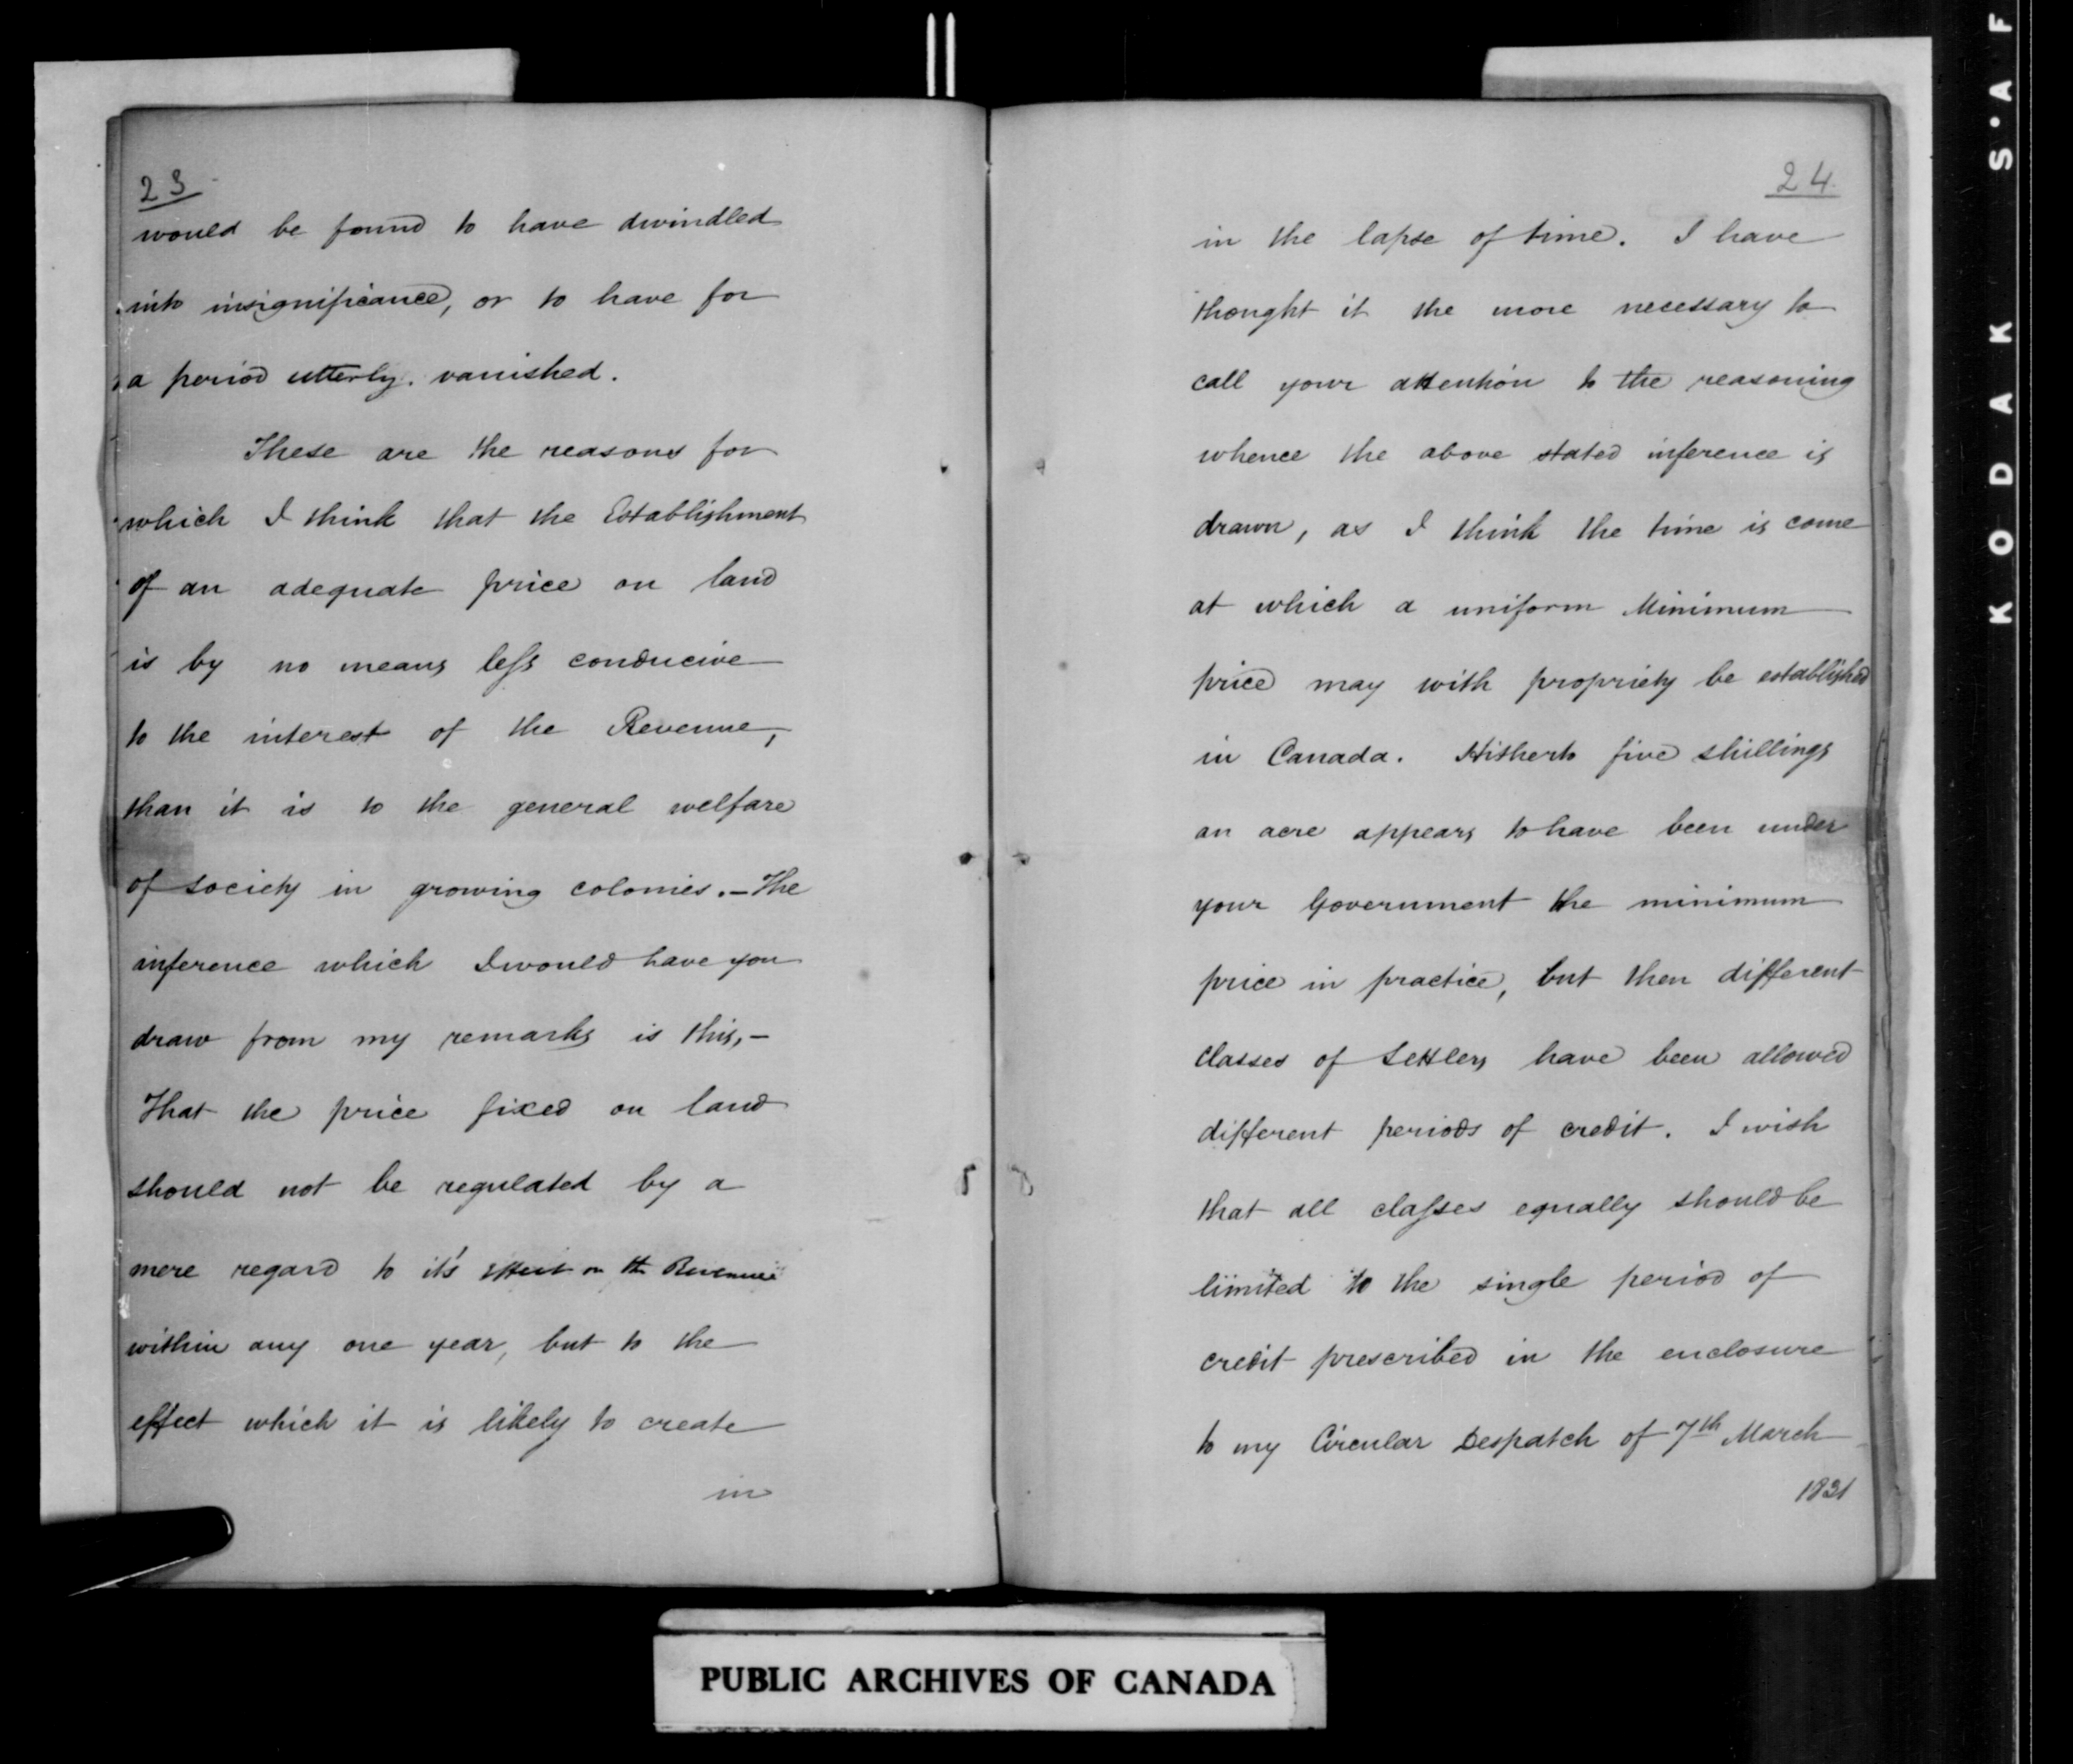 23
would be found to have dwindled
into insignificance, or to have for
a period utterly vanished.
These are the reasons for
which I think that the Establishment
of an adequate price on land
is by no means less conducive
to the interest of the Revenue,
than it is to the general welfare
of society in growing colonies. – The
inference which I would have you
draw from my remarks is this, –
That the price fixed on land
should not be regulated by a
mere regard to it's effect on the Revenue
within any one year, but to the
effect which it is likely to create
in
24
in the lapse of time. I have
thought it the more necessary to
call your attention to the reasoning
whence the above stated inference is
drawn, as I think the time is come
at which a uniform Minimum
price may with propriety be established
in Canada. Hitherto five shillings
an acre appears to have been under
your Government the minimum
price in practice, but then different
classes of Settlers have been allowed
different periods of credit. I wish
that all classes equally should be
limited to the single period of
credit prescribed in the enclosure
to my Circular Despatch of 7th March
1831
PUBLIC ARCHIVES OF CANADA
KODAK S·AF